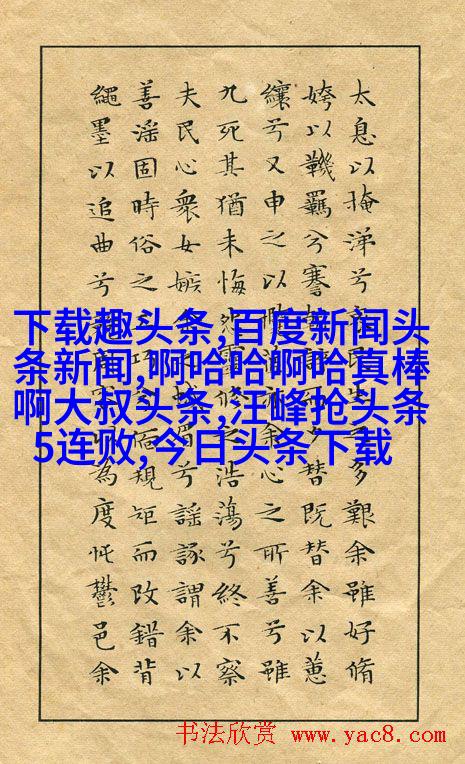 太息以掩涕兮哀民生之多艱余雖好脩
姱以鞿羈兮謇而夕替既替余以蕙
纕兮又申之以余心之所善兮雖
九死其猶未悔怨靈脩之浩蕩兮終不察
夫民心衆女嫉眉兮謠諑謂余以
善淫固時俗之工巧規矩而改錯背
繩墨以追曲兮為度忳鬱邑余
下载趣头条,百度新闻头
条新闻,啊哈哈啊哈真棒
啊大叔头条,汪峰抢头条
5连败,今日头条下载
书法欣赏 www.yac8.com